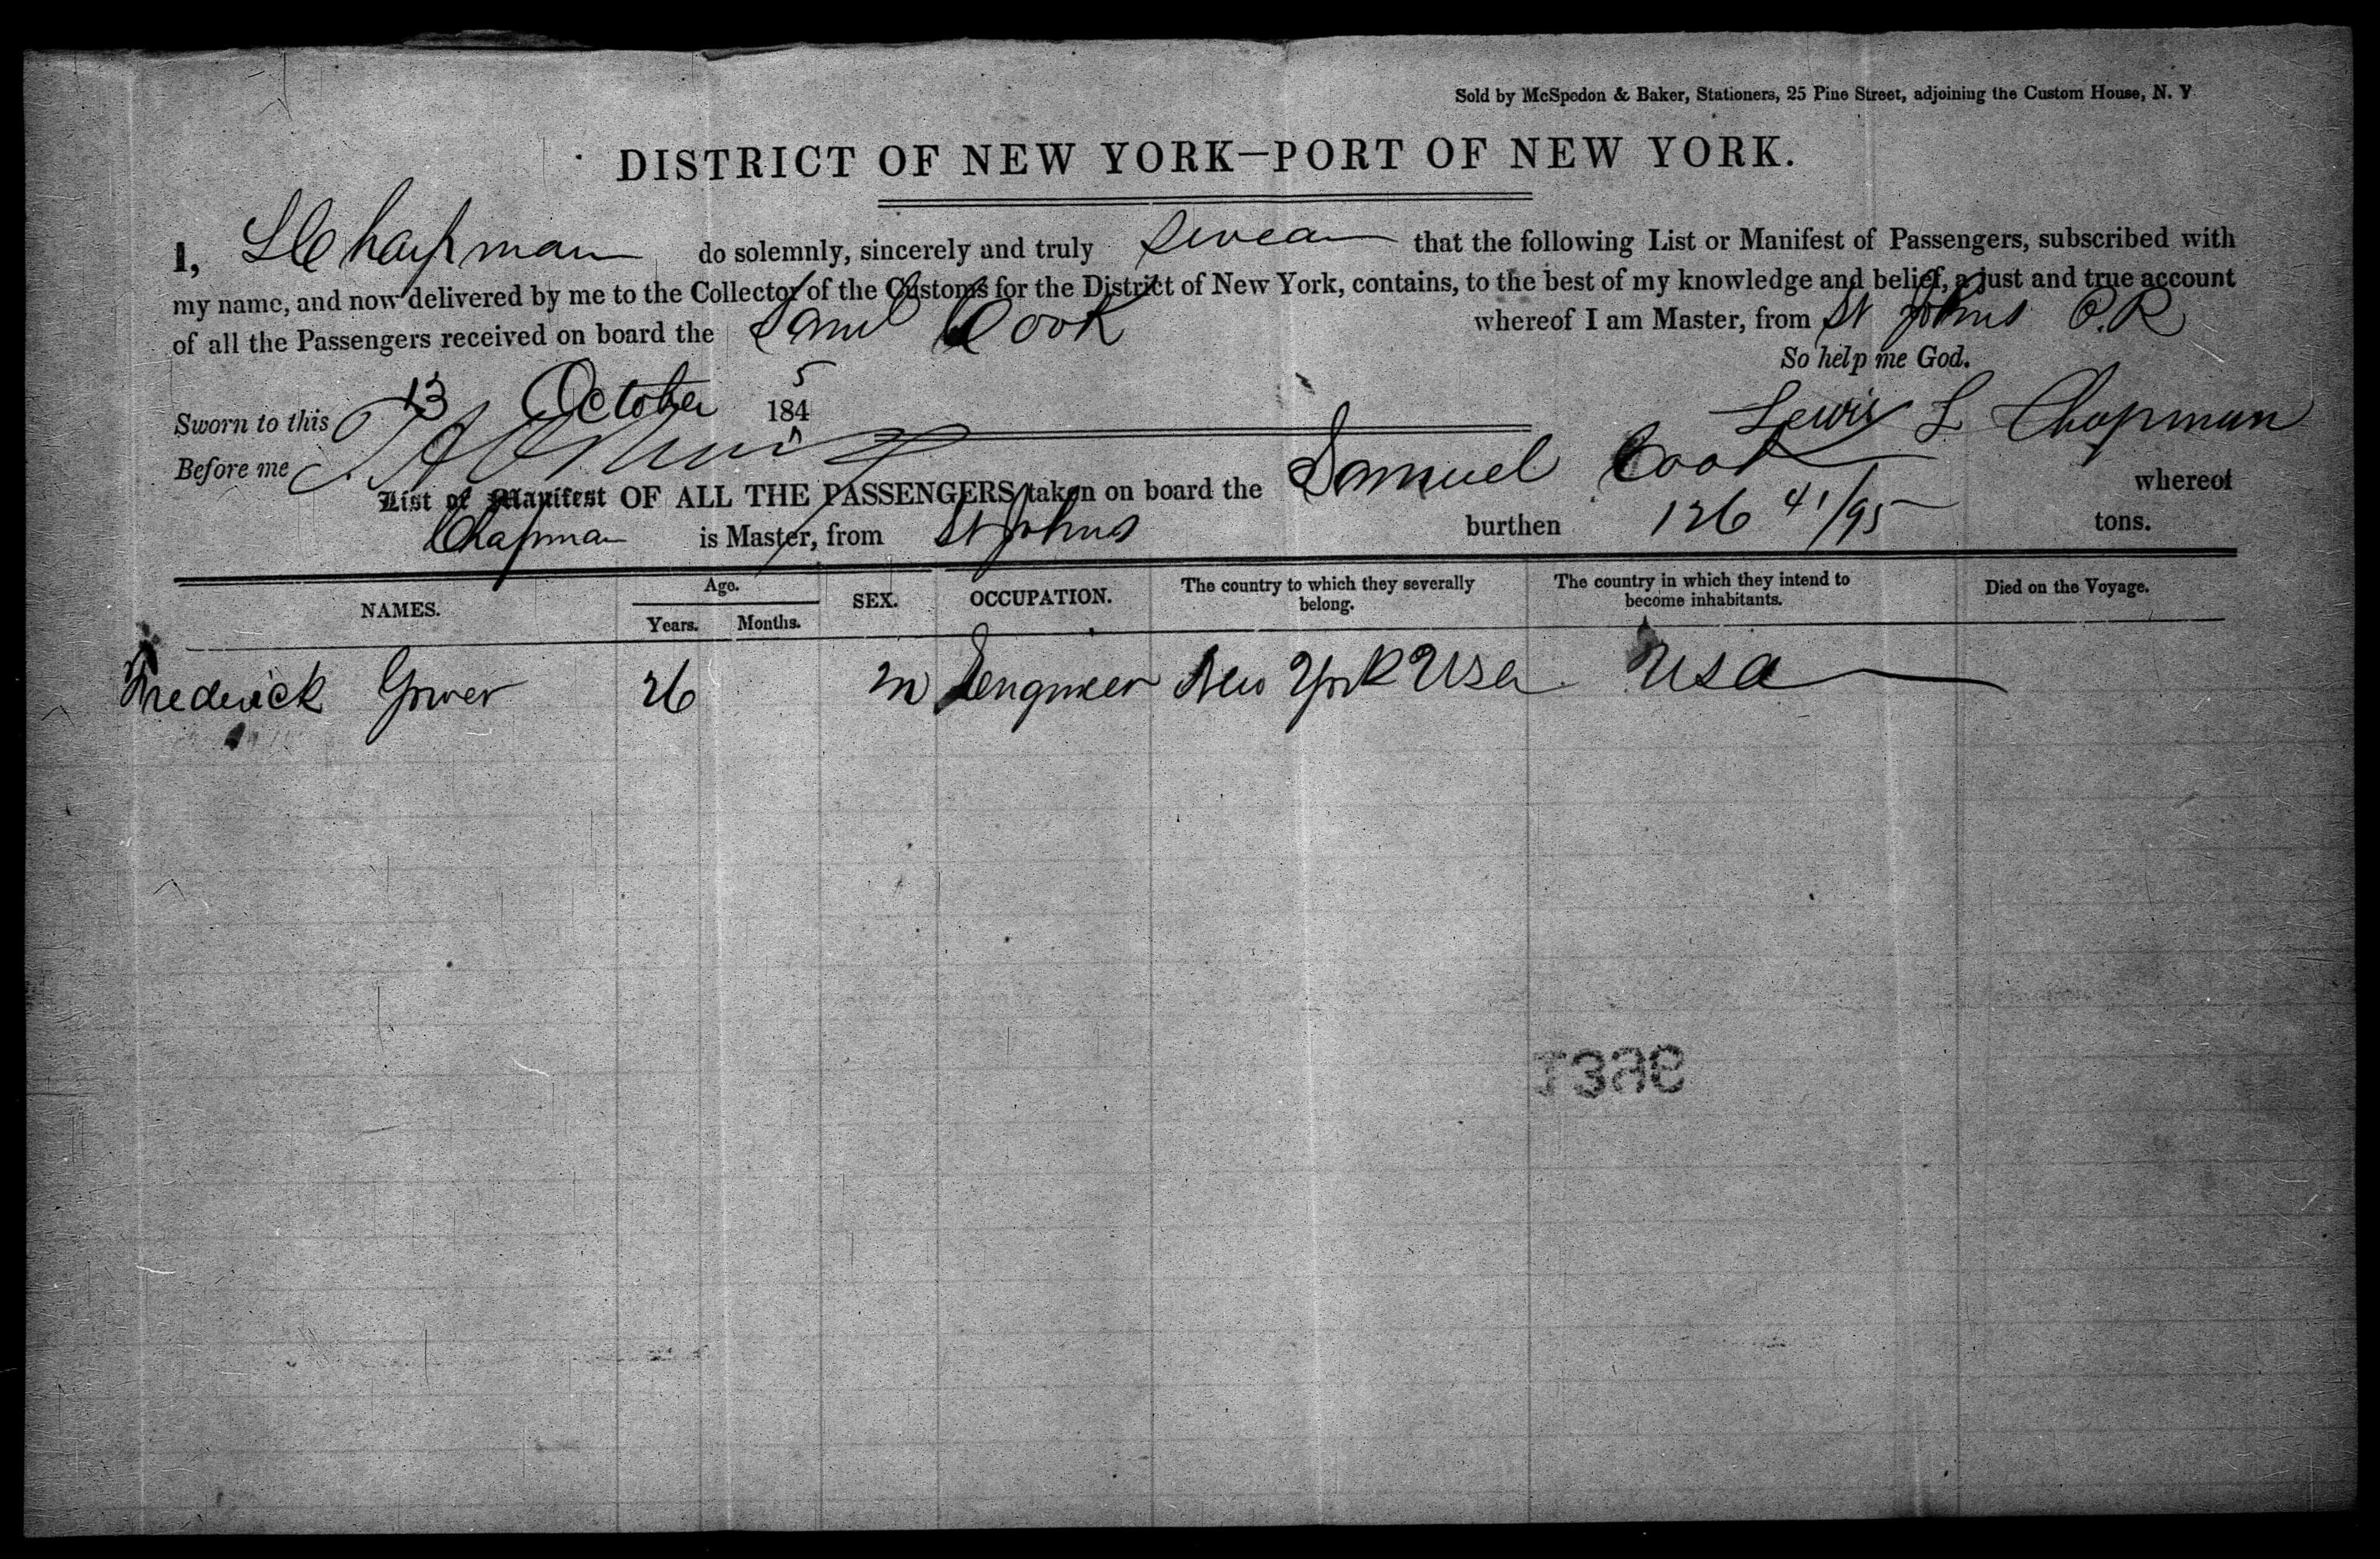 Sold by McSpedon & Baker, Stationers, 25 Pine Street, adjoining the Custom House, N. Y
DISTRICT OF NEW YORK—PORT OF NEW YORK.
I, L Chapman do solemnly, sincerely and truly swear that the following List or Manifest of Passengers, subscribed with
my name, and now delivered by me to the Collector of the Customs for the District of New York, contains, to the best of my knowledge and belief, a just and true account
of all the Passengers received on board the Saml Cook whereof I am Master, from St Johns P.R
So help me God.
Sworn to this 13 October 1845 Lewis L Chapman
Before me
List or Manifest OF ALL THE PASSENGERS taken on board the Samuel Cook whereof
Chapman is Master, from St Johns burthen 126 41/95 tons.
NAMES. Age. Years. Months. SEX. OCCUPATION. The country to which they severally belong. The country in which they intend to become inhabitants. Died on the Voyage.
Frederick Gower 26 m Engineer New York Usa Usa
1396